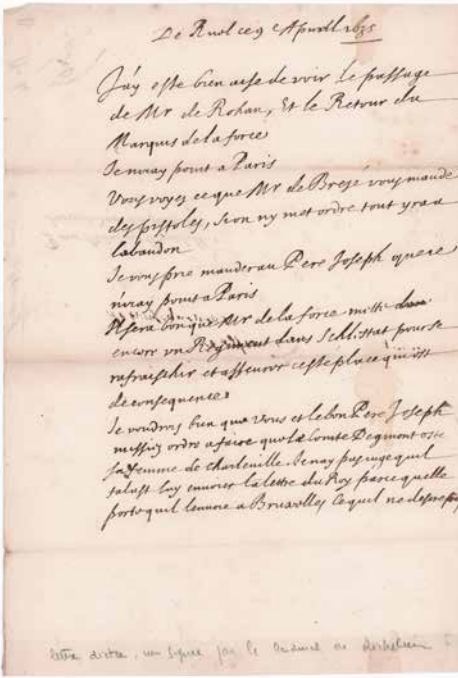 De Ruel ce 9 Apuril 1635
J'ay esté bien aise de voir le passage
de Mr de Rohan, Et le Retour du
Marquis de la force
Je niray point a Paris
Vous voyez ce que Mr de Bresé vous mande
des pistoles, si on ny met ordre tout yra a
labandon
Je vous prie mander au Pere Joseph que je
niray point a Paris
Il sera bon que Mr de la force mitte dans
encore un Regiment dans Schlistat pour se
rafraischir et asseurer ceste place qui est
de consequence
Je voudrois bien que vous et le bon Pere Joseph
missiez ordre a faire que le Comte Degmont oste
sa femme de Charleville Je nay pas juge quil
falust luy envoier la lettre du Roy parce quelle
porte quil lenvoie a Bruxelles ce quil ne
lettre dictée, non signée par le Cardinal de Richelieu